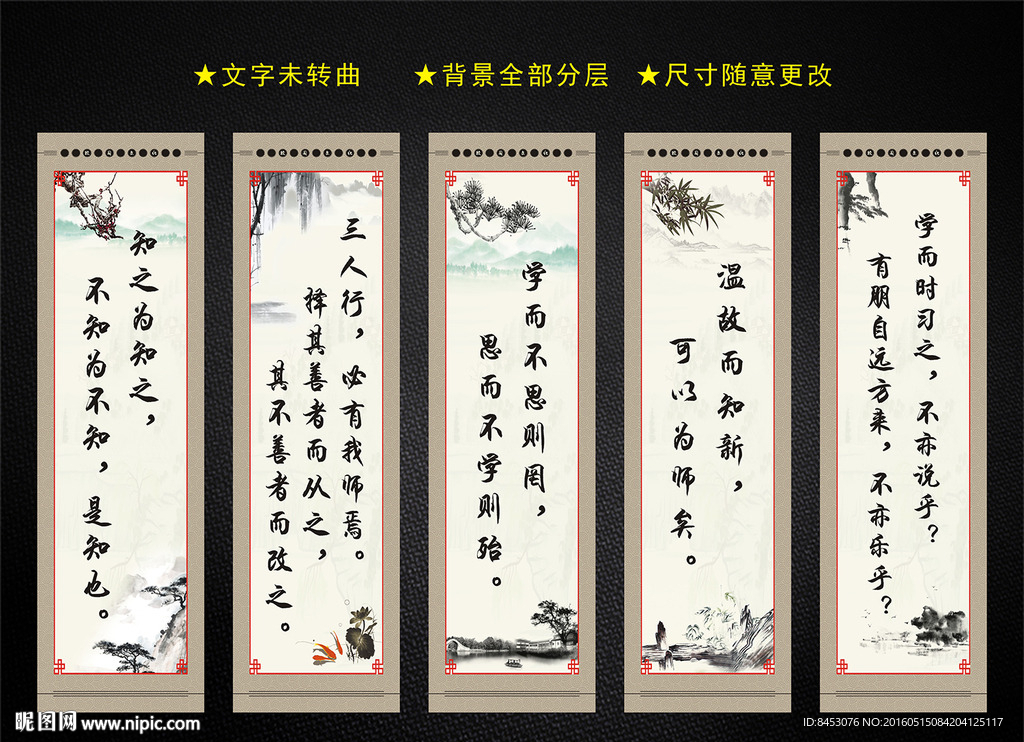 ★文字未转曲 ★背景全部分层 ★尺寸随意更改
学而时习之，不亦说乎？
有朋自远方来，不亦乐乎？
温故而知新，
可以为师矣。
学而不思则罔，
思而不学则殆。
三人行，必有我师焉。
择其善者而从之，
其不善者而改之。
知之为知之，
不知为不知，是知也。
昵图网 www.nipic.com
ID:8453076 NO:20160515084204125117